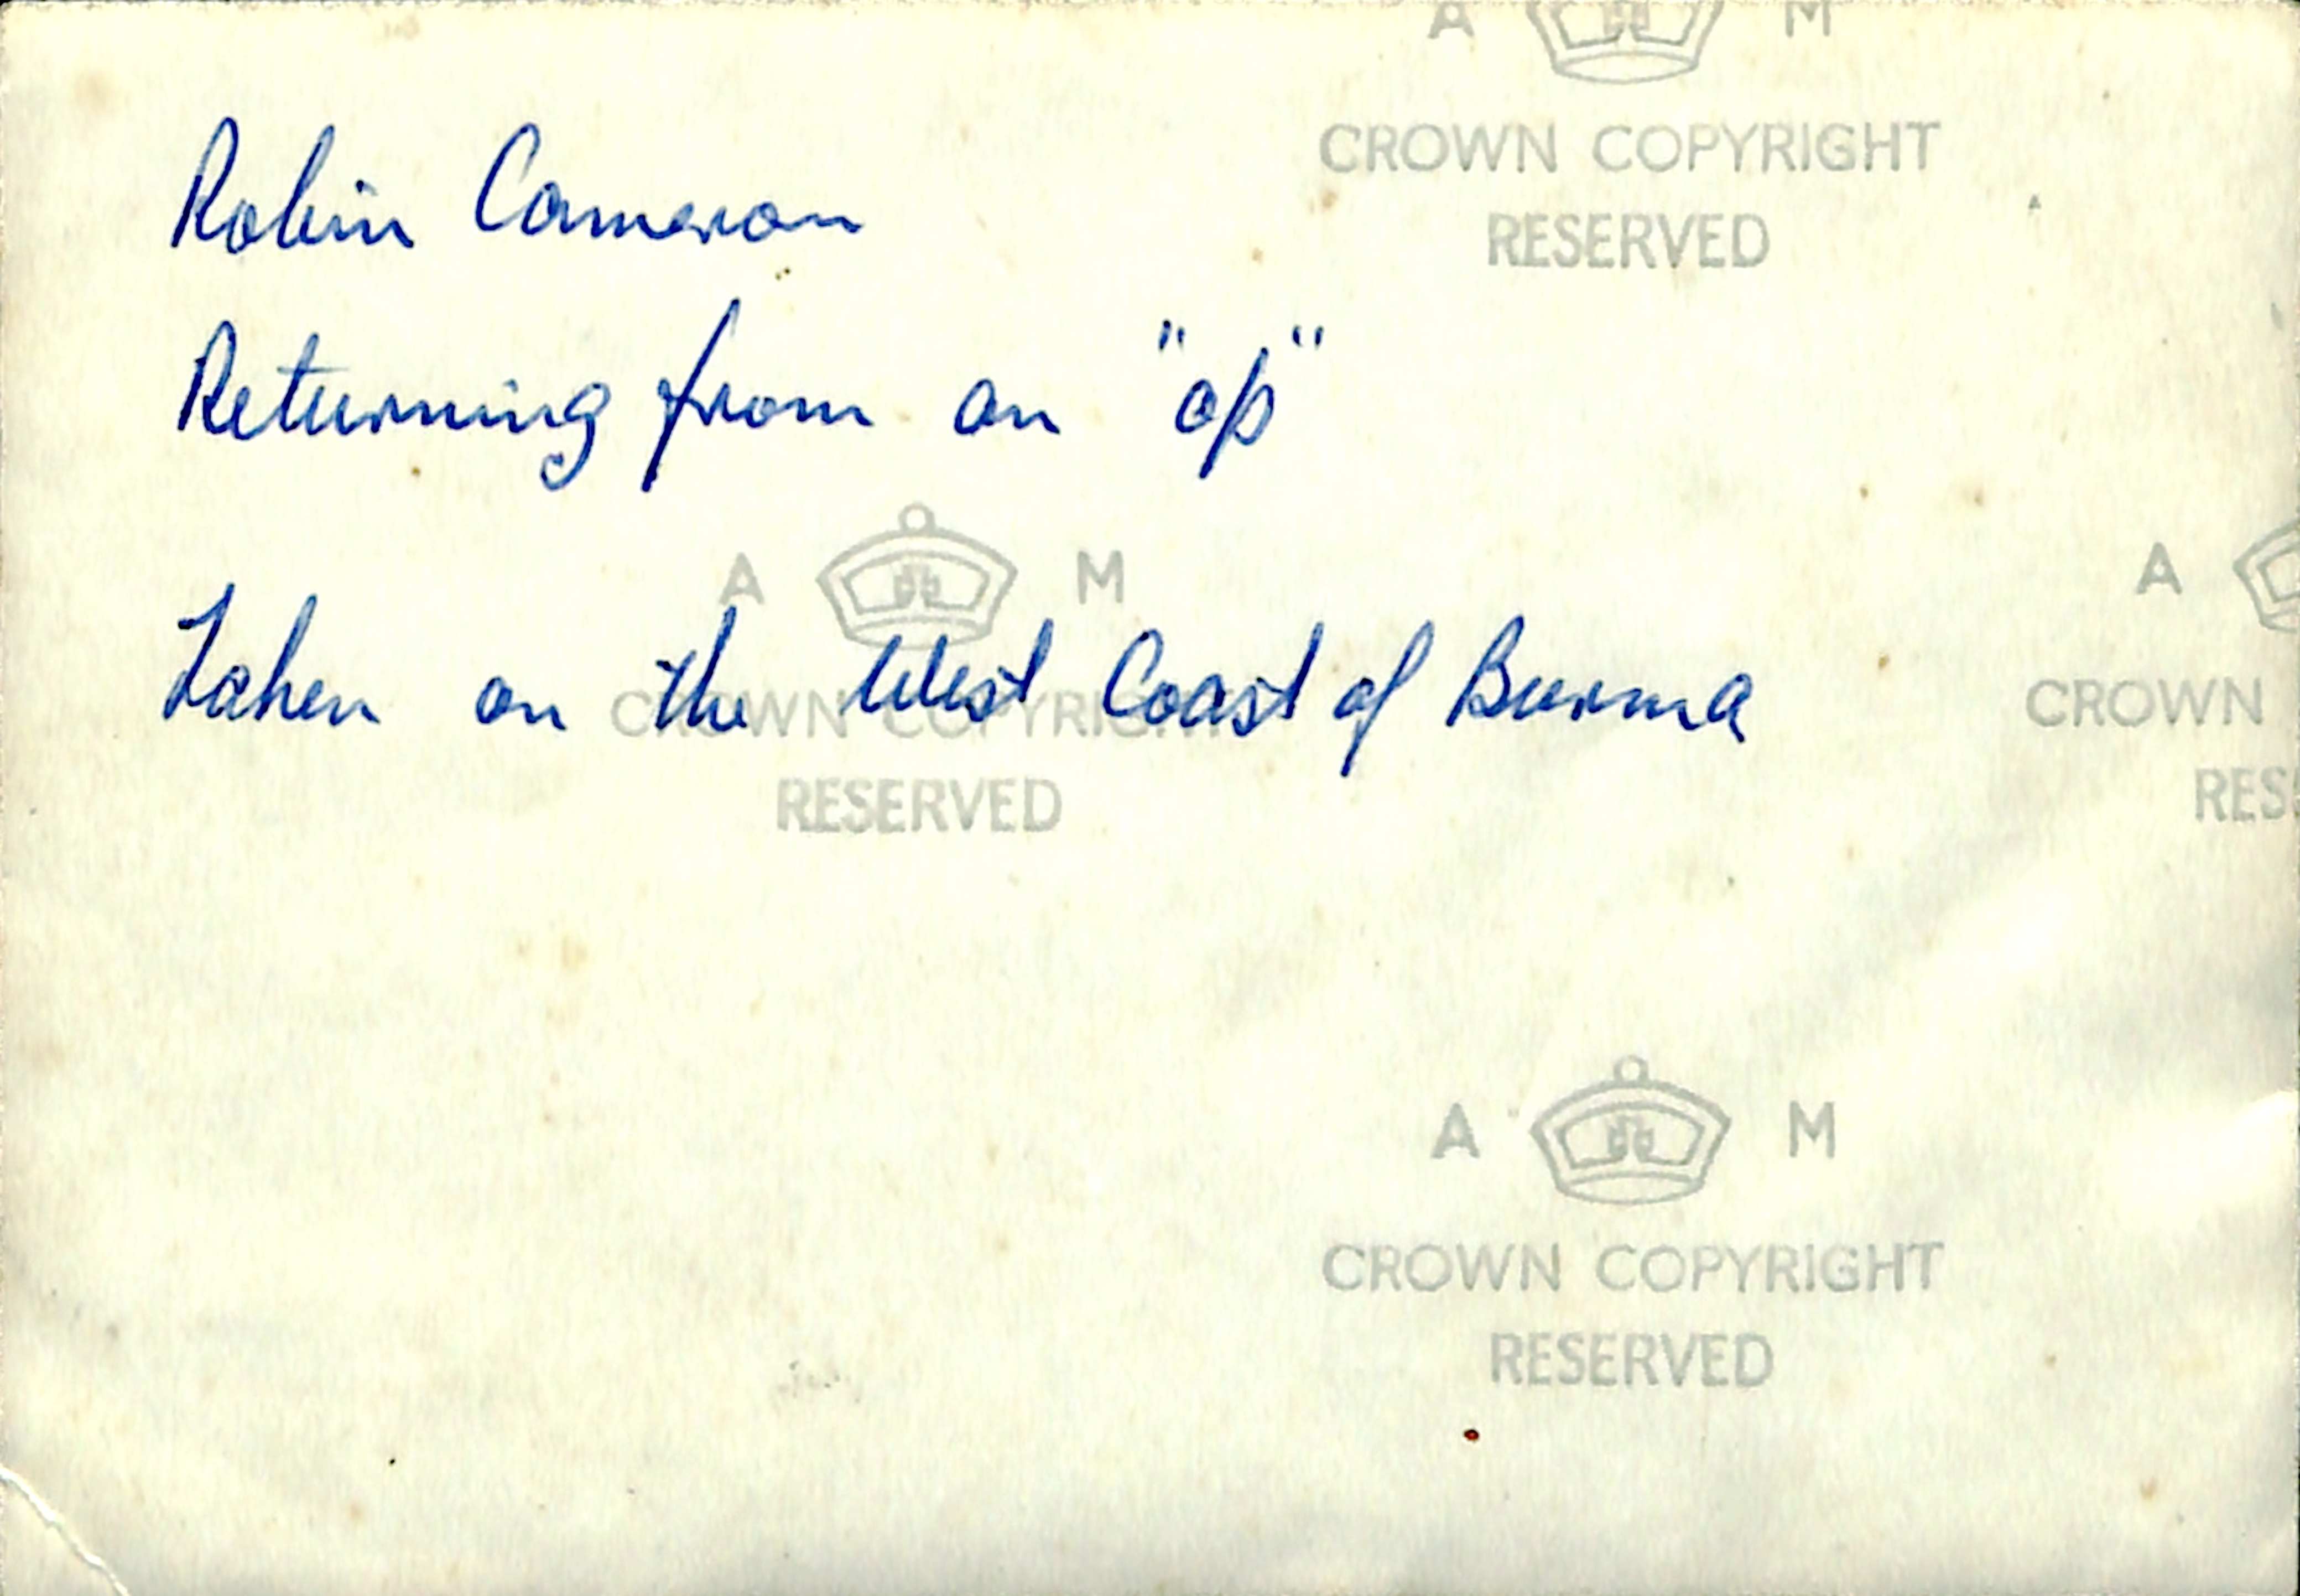 A M
CROWN COPYRIGHT
RESERVED
Robin Cameron
Returning from an "op"
A M
CROWN COPYRIGHT
RESERVED
Taken on the West Coast of Burma
A
CROWN
RES
A M
CROWN COPYRIGHT
RESERVED